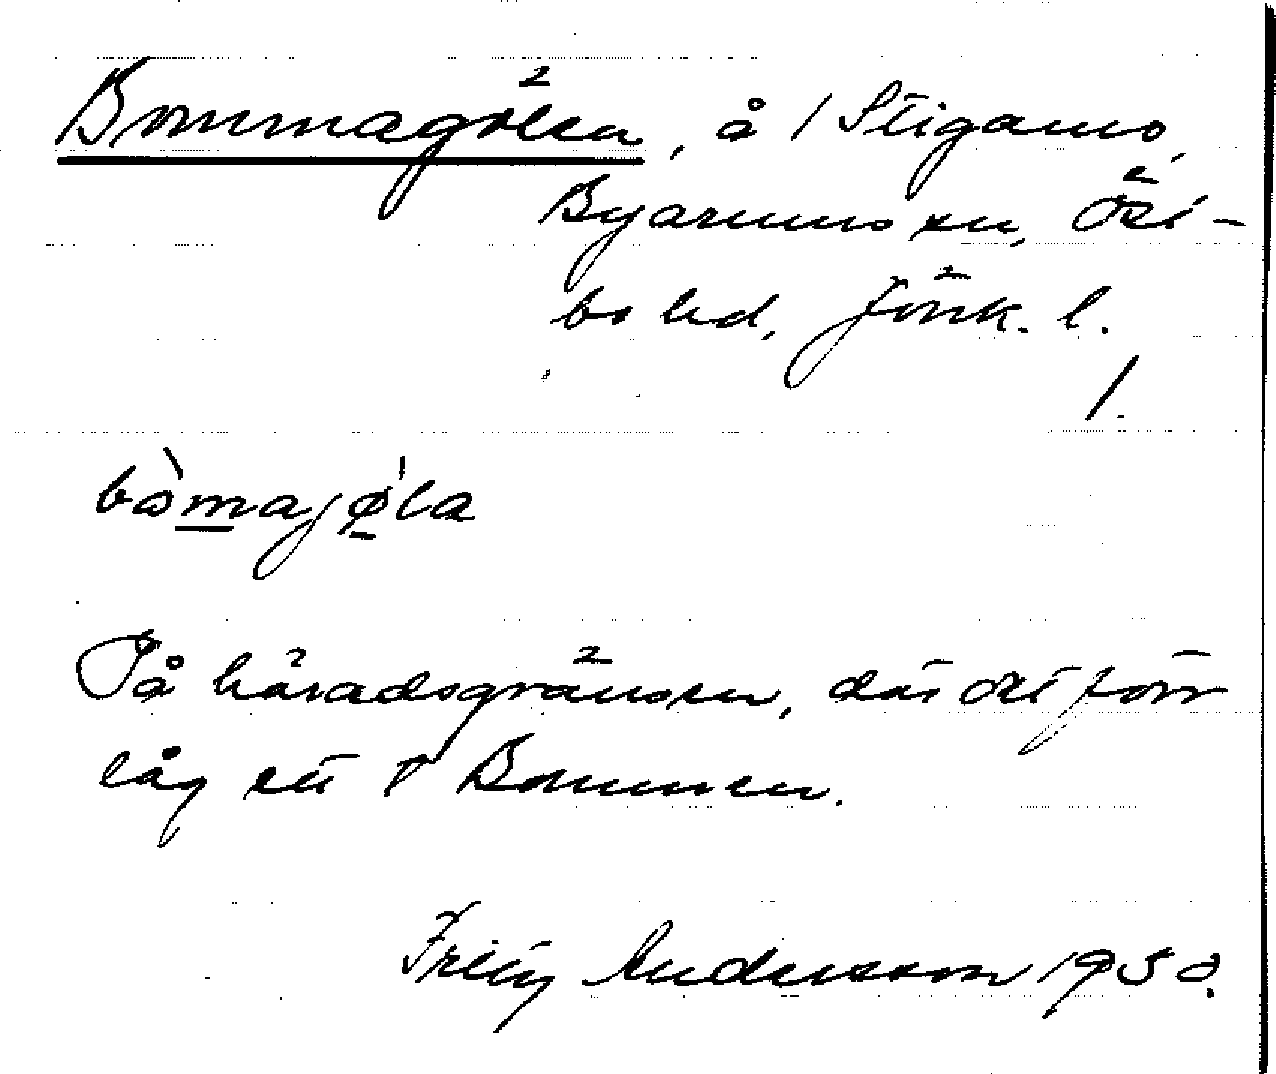 Bommagölen, å 1 Stigamo,
Byarums sn, Öst-
bo hd, Jönk. l.
1.
bòmajø̀la
På häradsgränsen, där det förr
låg ett T Bommen.
Fritz Andersson 1930.